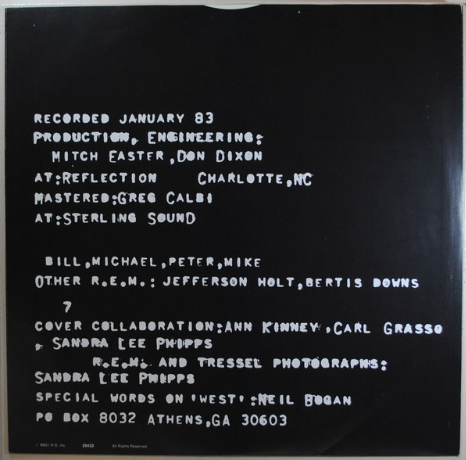 RECORDED JANUARY 83
PRODUCTION, ENGINEERING:
MITCH EASTER,DON DIXON
AT:REFLECTION CHARLOTTE,NC
MASTERED:GREG CALBI
AT:STERLING SOUND
BILL,MICHAEL,PETER,MIKE
OTHER R.E.M.: JEFFERSON HOLT,BERTIS DOWNS
7
COVER COLLABORATION:ANN KINNEY,CARL GRASSO
, SANDRA LEE PHIPPS
R.E.M. AND TRESSEL PHOTOGRAPHS:
SANDRA LEE PHIPPS
SPECIAL WORDS ON 'WEST':NEIL BOGAN
PO BOX 8032 ATHENS,GA 30603
All Rights Reserved